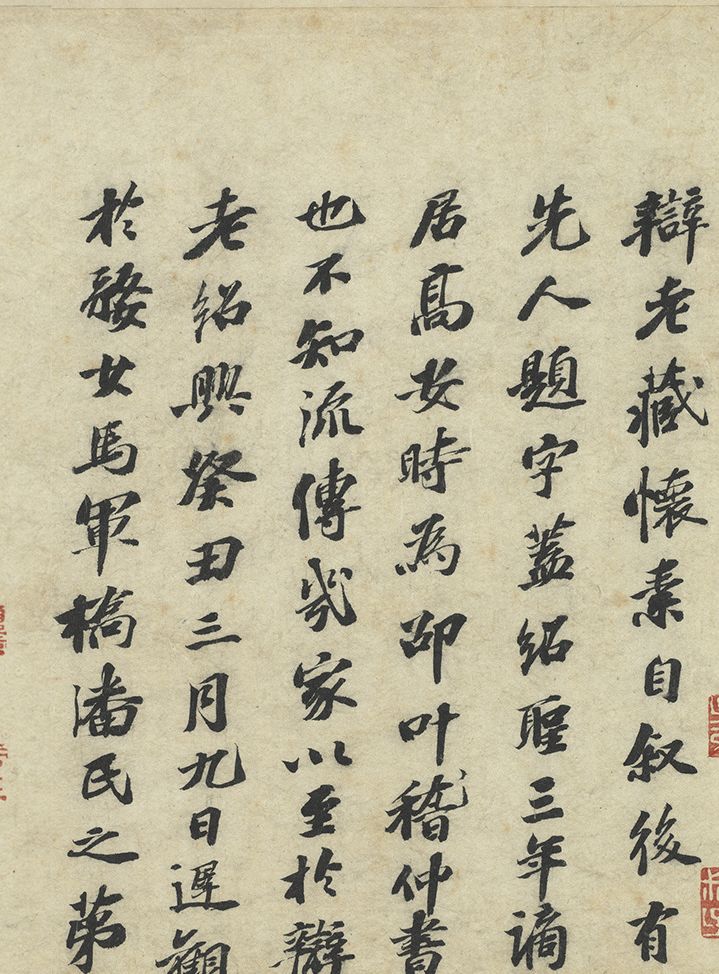 辯老藏懷素自叙後有
先人題字蓋紹聖三年謫
居高安時為邵叶稽仲書
也不知流傳幾家以至於辯
老紹興癸丑三月九日遲觀
於婺女馬軍橋潘氏之第